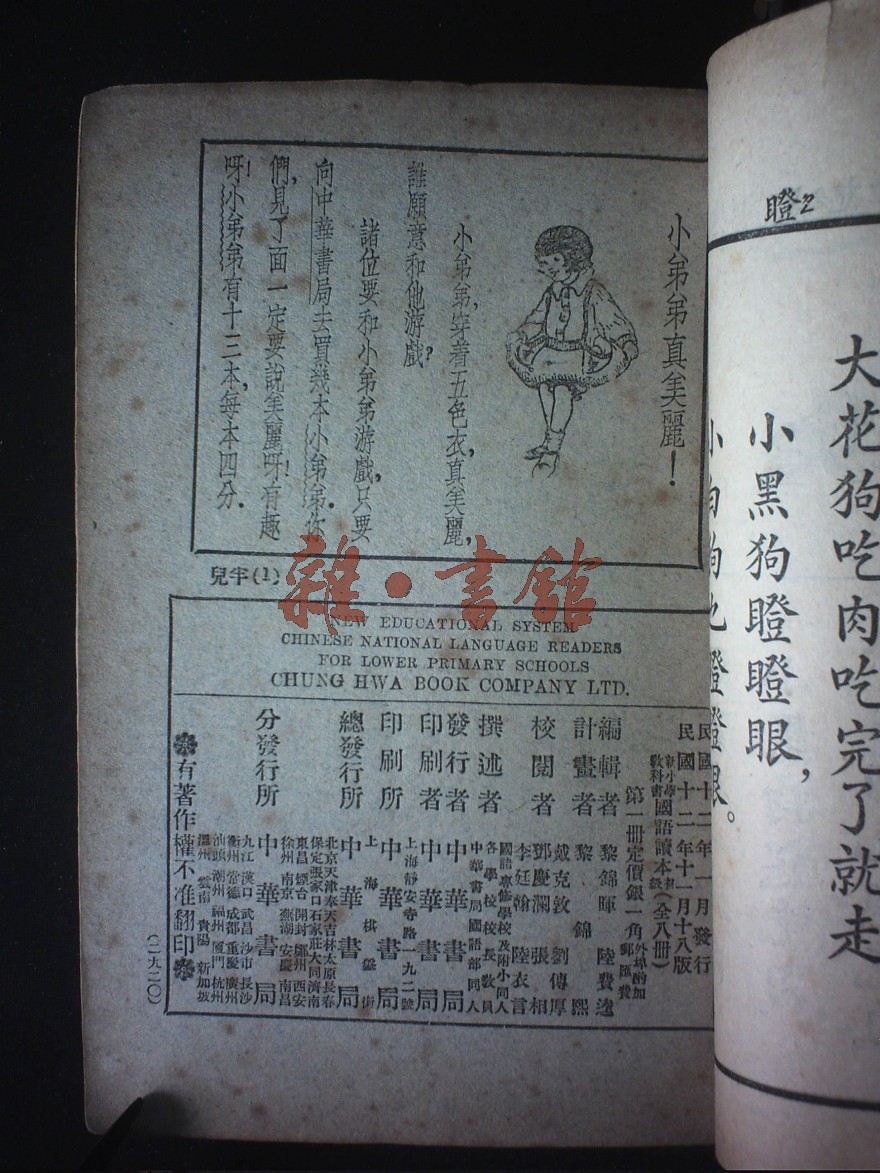 瞪
大花狗吃肉吃完了就走
小黑狗瞪瞪眼,
小弟弟真美麗!
小弟弟,穿着五色衣,真美麗,
誰願意和他游戲?
諸位要和小弟弟游戲,只要
向中華書局去買幾本小弟弟.你
們,見了面一定要說美麗呀!有趣
呀!小弟弟有十三本,每本四分.
兒字(1)
雜·書館
NEW EDUCATIONAL SYSTEM
CHINESE NATIONAL LANGUAGE READERS
FOR LOWER PRIMARY SCHOOLS
CHUNG HWA BOOK COMPANY LTD.
民國十二年一月發行
民國十二年十一月十八版
新小學教科書 國語讀本 初級(全八册)
第一冊定價銀一角 外埠酌加郵匯費
編輯者 黎錦暉 陸費逵
計畫者 黎錦熙
戴克敦 劉傳厚
校閱者 鄧慶瀾 張相
李廷翰 陸衣言
撰述者 國語專修學校及附小同人
各學校校長教員
中華書局國語部同人
發行者 中華書局
印刷者 中華書局
上海靜安寺路一九二號
印刷所 中華書局
上海棋盤街
總發行所 中華書局
北京天津奉天吉林太原長春
保定張家口石家莊大同濟南
東昌煙台開封鄭州西安
徐州南京蕪湖安慶南昌
分發行所 中華書局
九江漢口武昌沙市長沙
衡州常德成都重慶廣州
汕頭潮州福州厦門杭州
溫州雲南貴陽新加坡
有著作權不准翻印
(二九二〇)